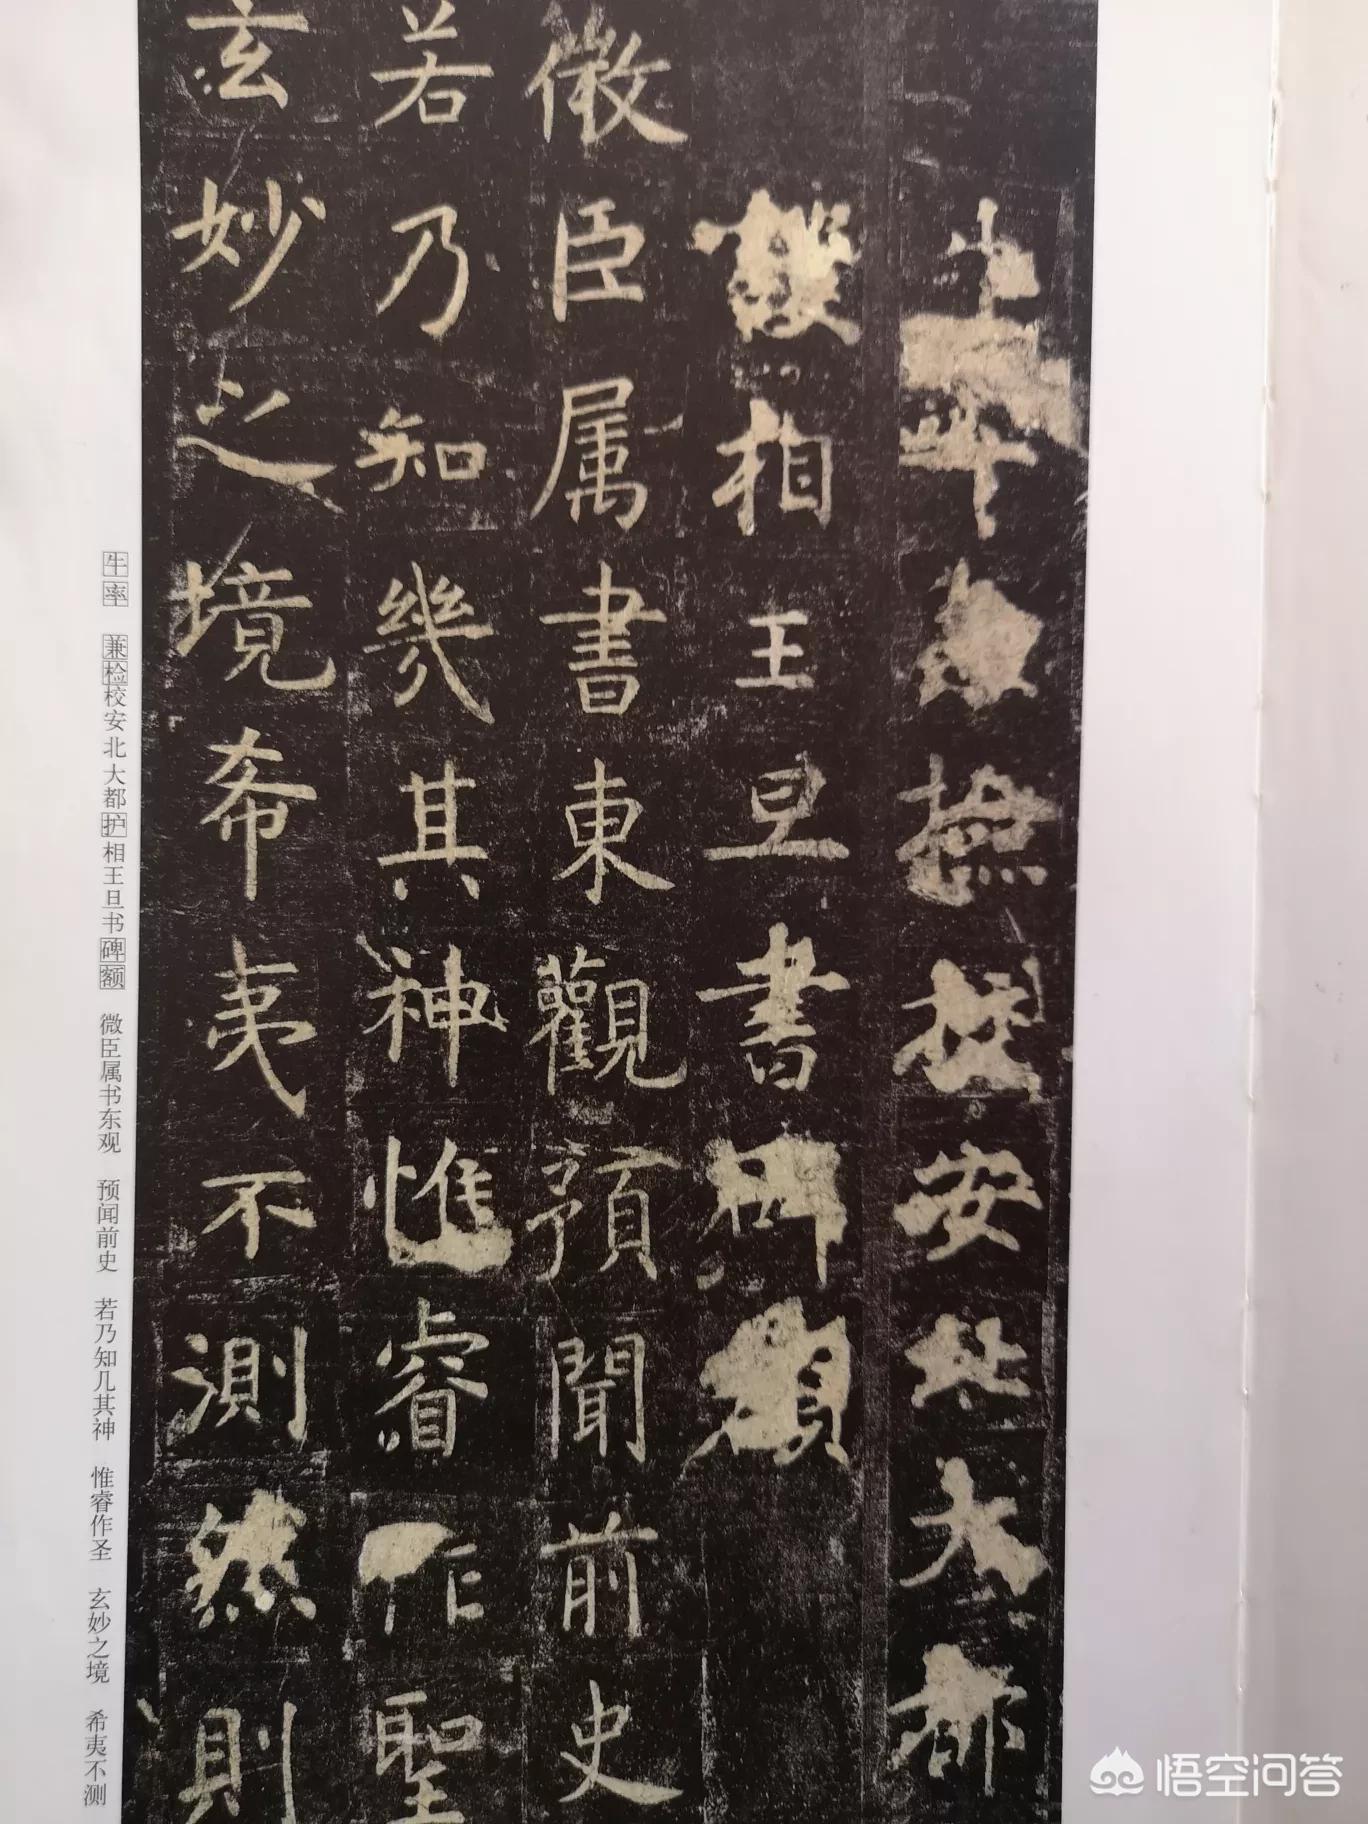 安北大都
相王旦書碑額
微臣属書東觀預聞前史
若乃知幾其神惟睿作聖
玄妙之境希夷不測然則
牛率 兼检校安北大都护相王旦书碑额 微臣属书东观 预闻前史 若乃知几其神 惟睿作圣 玄妙之境 希夷不测
悟空问答